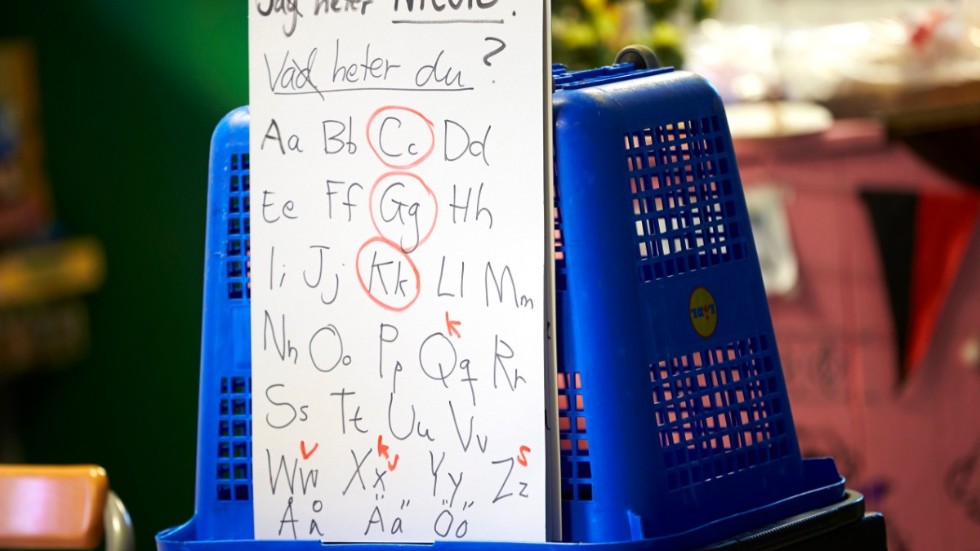 Jag heter
Vad heter du?
Aa Bb Cc Dd
Ee Ff Gg Hh
Ii Jj Kk Ll Mm
k
Nn Oo Pp Qq Rr
Ss Tt Uu Vv
v k v s
Ww Xx Yy Zz
Åå Ää Öö
LIDL